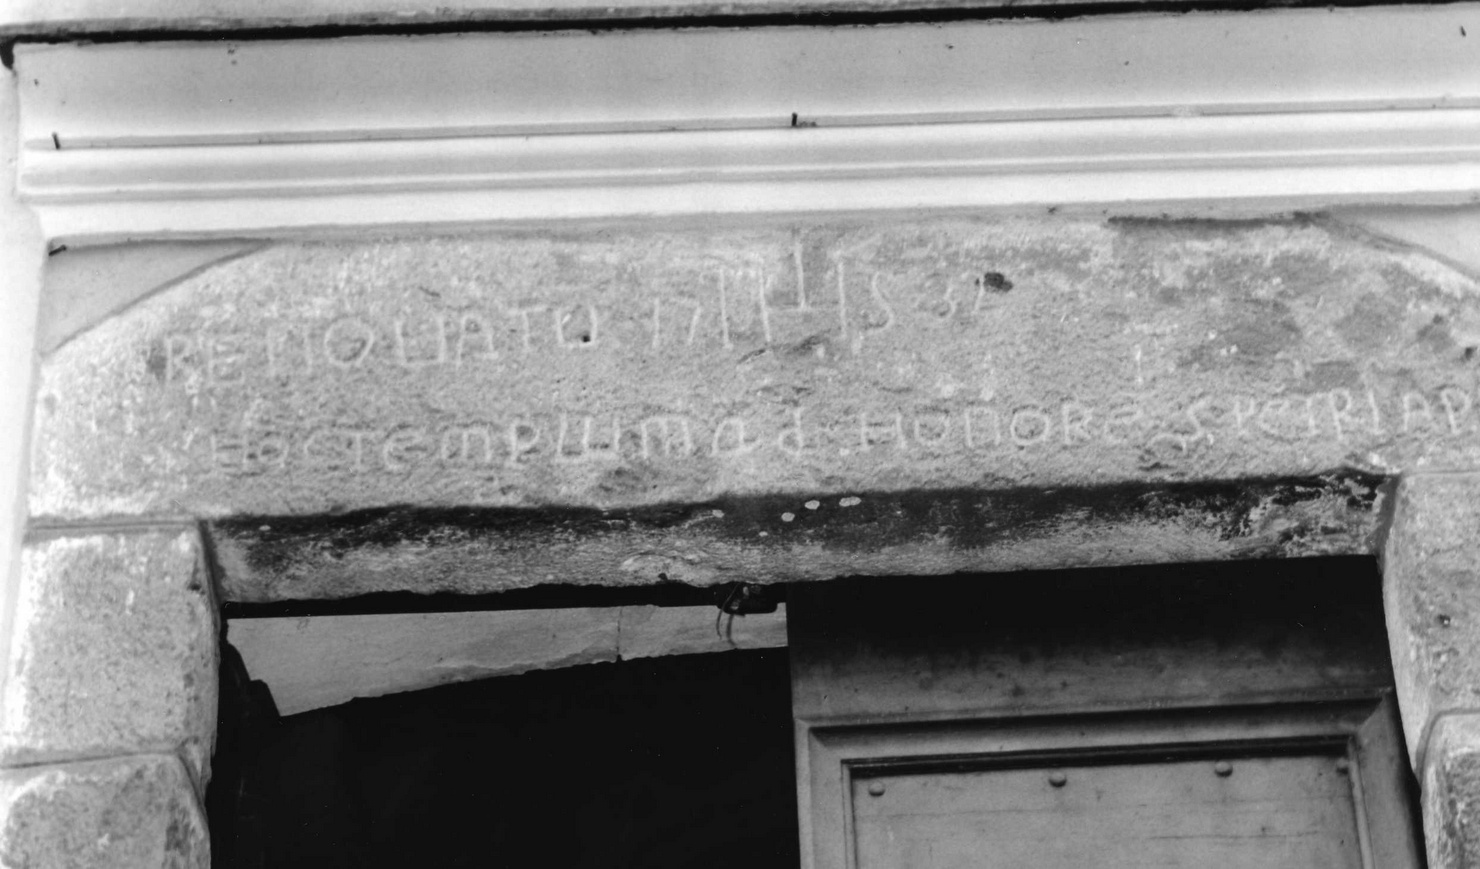 RENOUATU 17 IHS 31
HOC TEMPLUM ad HONORE S PETRI AP